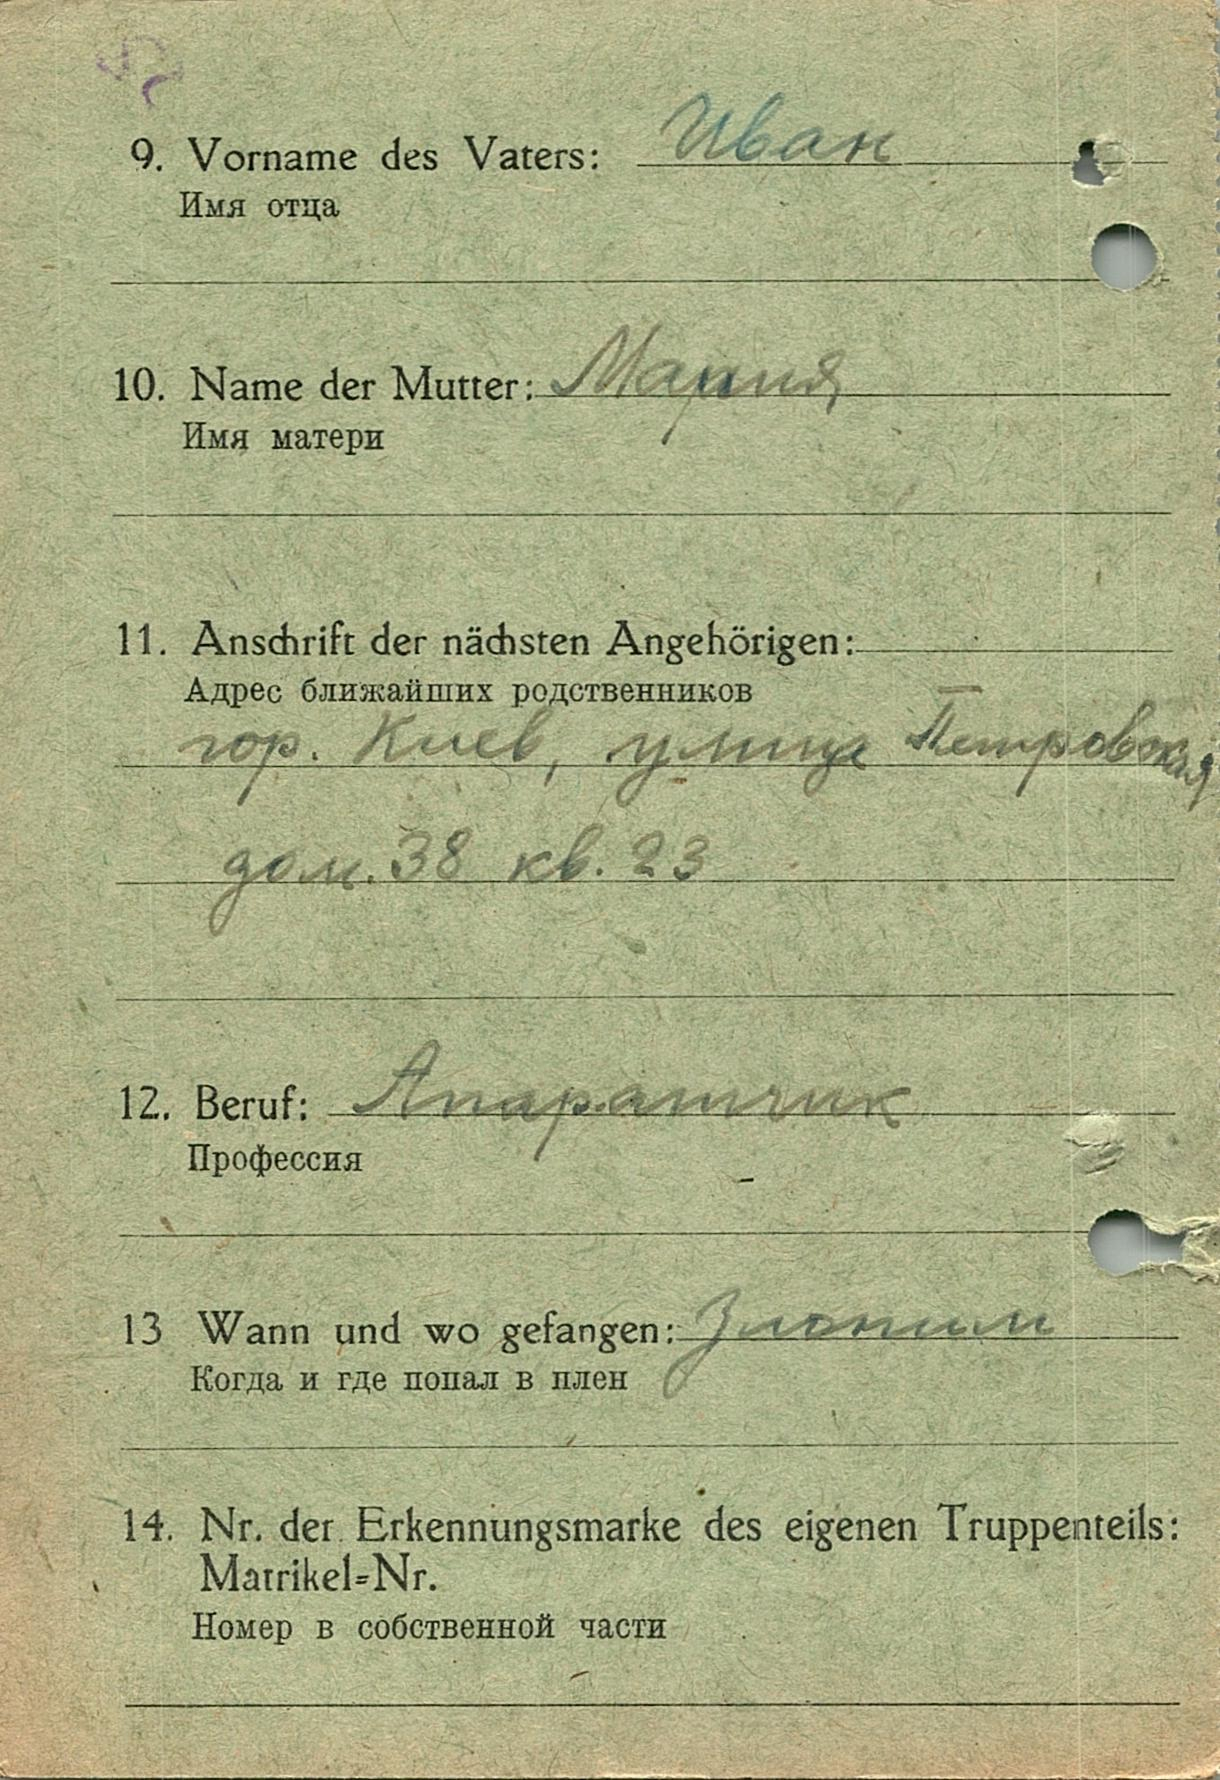 9. Vorname des Vaters: Иван
Имя отца
10. Name der Mutter: Мария
Имя матери
11. Anschrift der nächsten Angehörigen:
Адрес ближайших родственников
гор. Киев, улица Петровская
дом. 38 кв. 23
12. Beruf: Апаратчик
Профессия
13 Wann und wo gefangen: Злоним
Когда и где попал в плен
14. Nr. der Erkennungsmarke des eigenen Truppenteils:
Matrikel=Nr.
Номер в собственной части